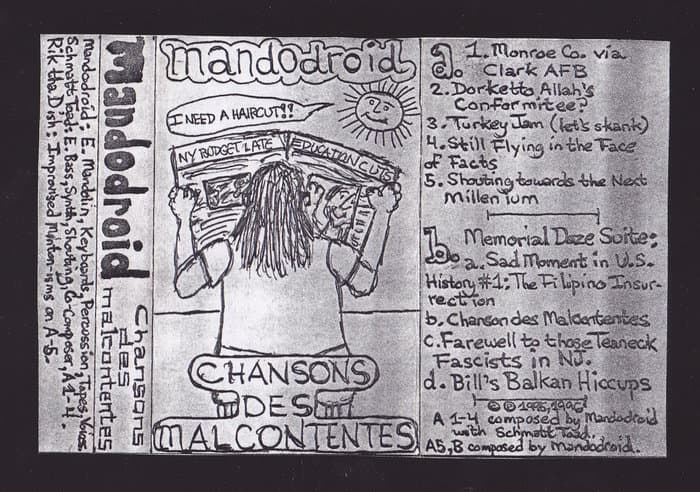 Mandodroid: E. Mandolin, Keyboards, Percussion, Tapes, Voices.
Schmatt Toad: E. Bass, Synth, Co-Composer, A 1-4.
Rik the Dish: Improvised on A-5.
Mandodroid
Chansons
des
malcontentes
mandodroid
I NEED A HAIRCUT!!
NY BUDGET LATE
EDUCATION CUTS
CHANSONS
DES
MALCONTENTES
a. 1. Monroe Co. via
Clark AFB
2. Dorketto Allah's
Conformitee?
3. Turkey Jam (let's skank)
4. Still Flying in the Face
of Facts
5. Shouting towards the Next
Millenium
b. Memorial Daze Suite:
a. Sad Moment in U.S.
History #1: The Filipino Insur-
rection
b. Chanson des Malcontentes
c. Farewell to those Teaneck
Fascists in NJ.
d. Bill's Balkan Hiccups
© ℗ 1995, 1996
A 1-4 composed by Mandodroid
with Schmatt Toad.
A5, B composed by Mandodroid.